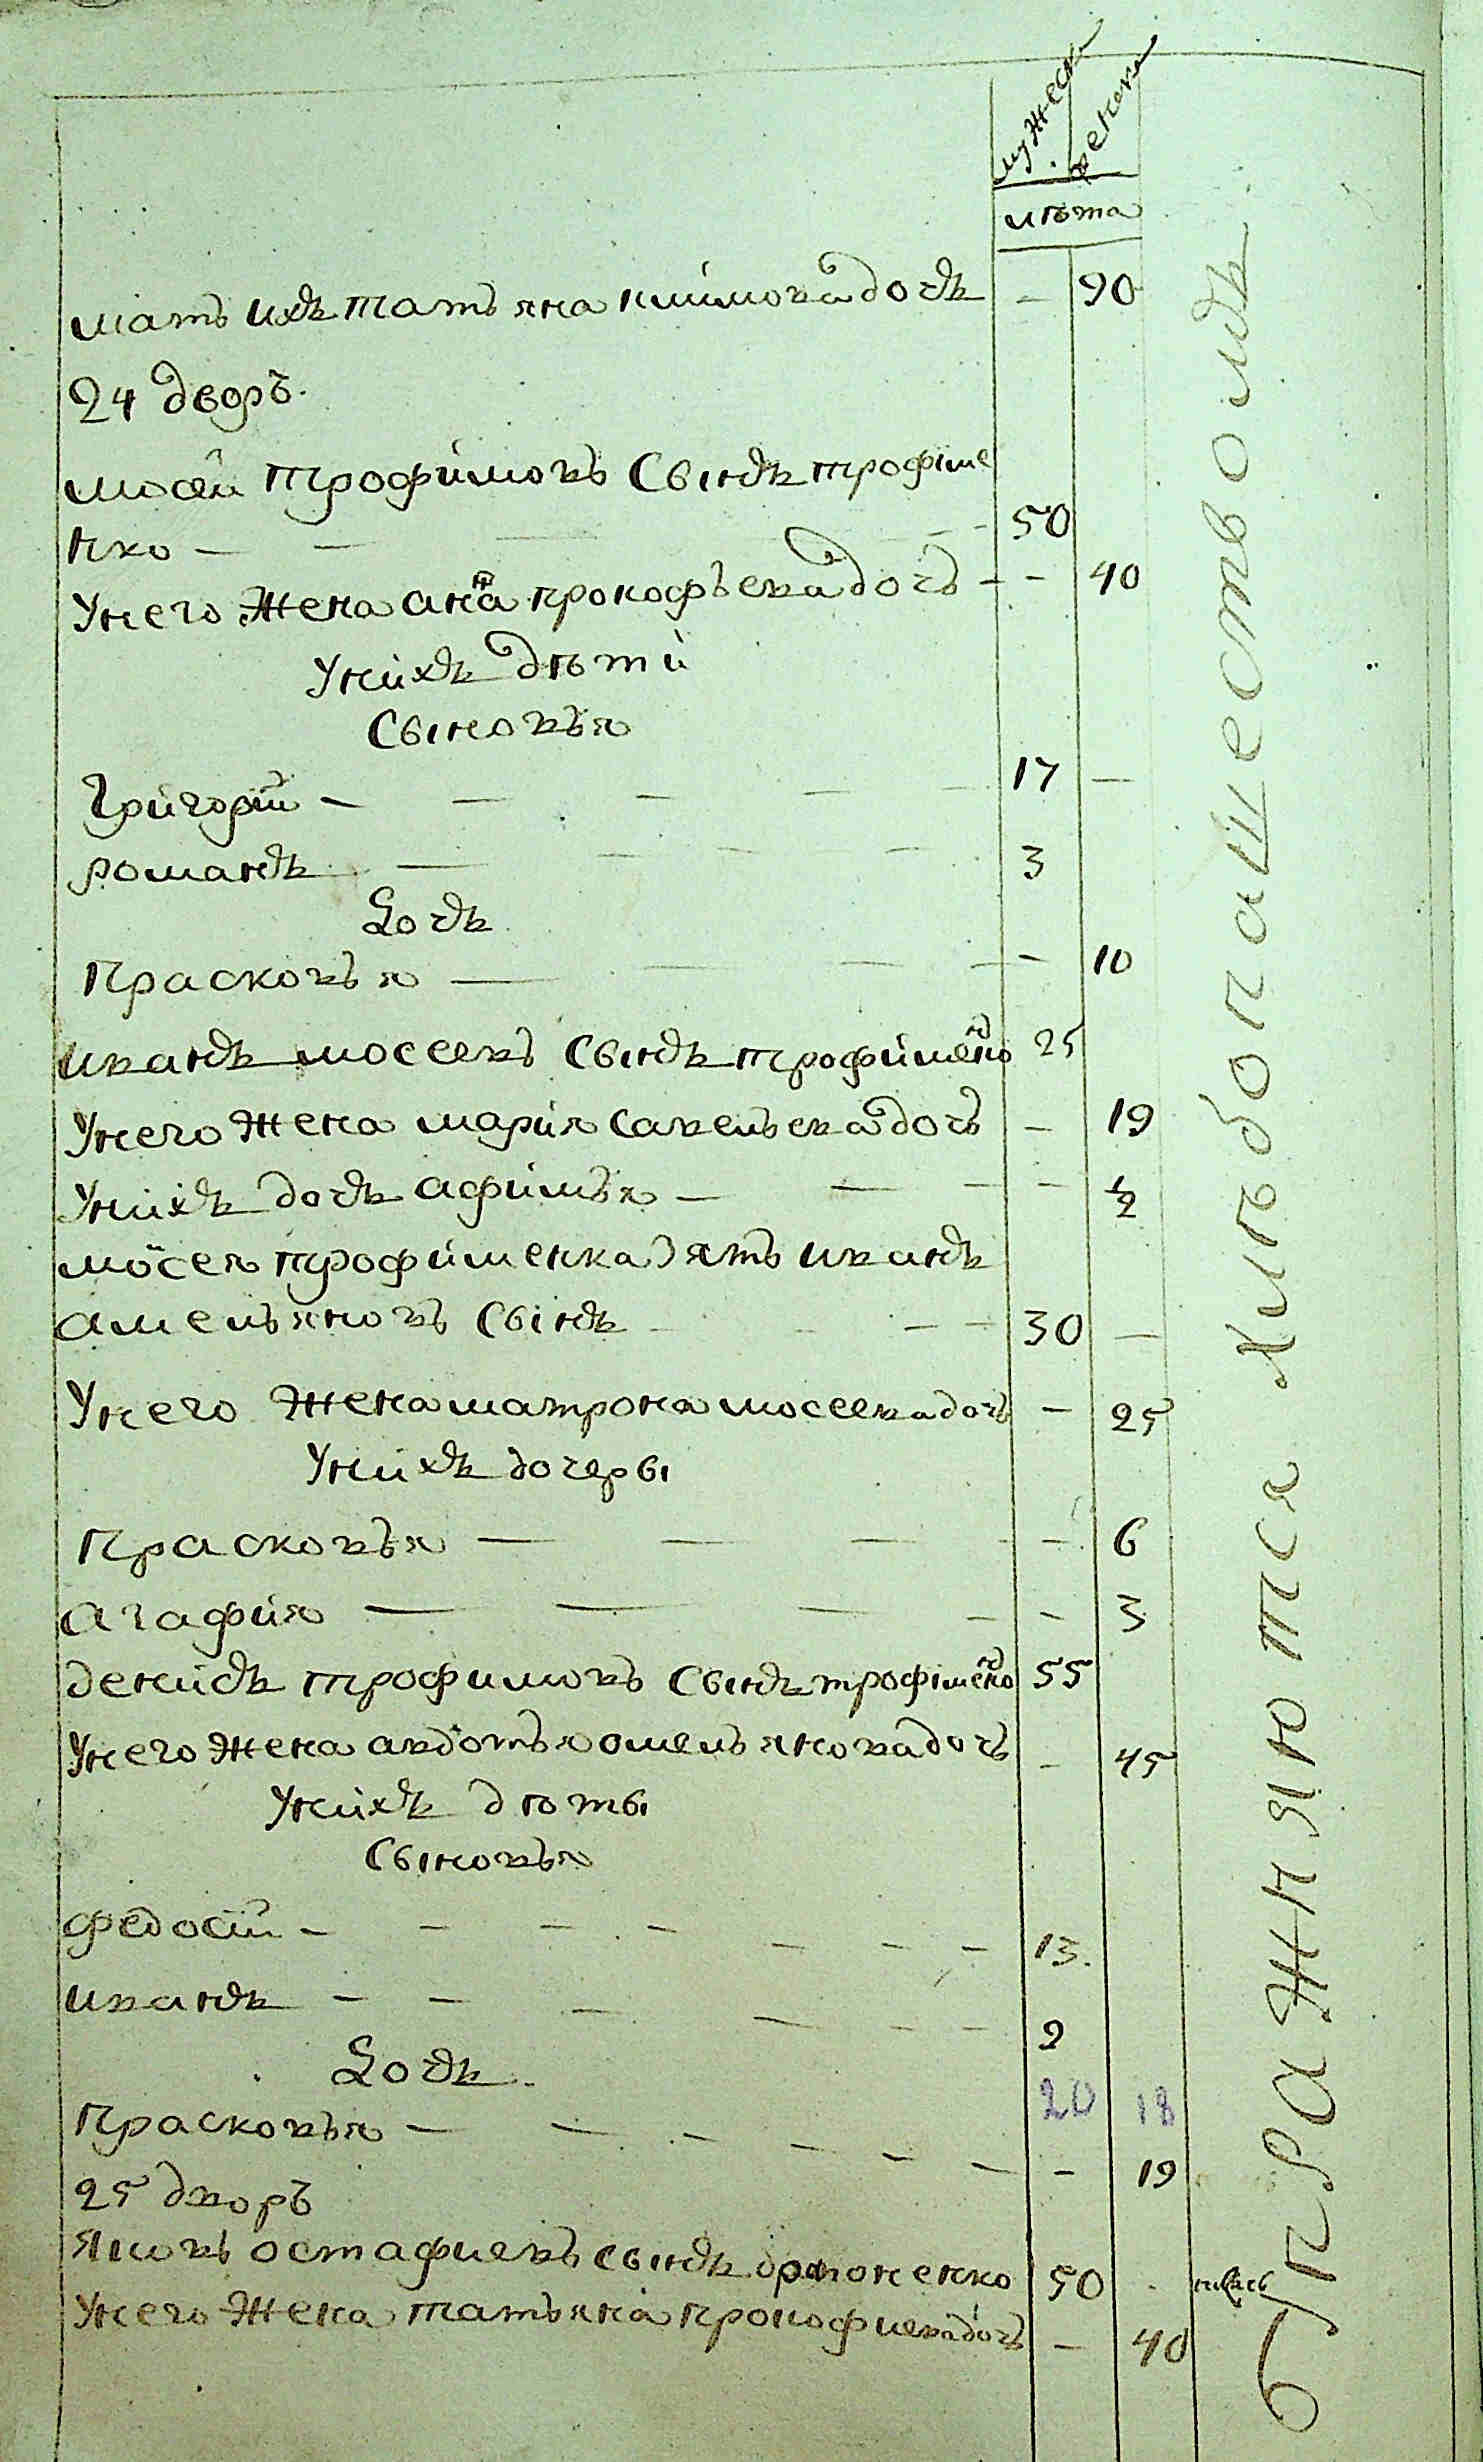 мужеска женска
лѣта
мать ихъ татьяна климова дочъ - 90
24 дворъ.
мосей трофимовъ сынъ трофиме
нко - - - 50
у него жена анна прокофьева дочь - - 40
у нихъ дѣти
сыновья
григорий - - - - - 17 -
романъ - - - - 3
дочъ
прасковья - - - - - 10
иванъ мосеевъ сынъ трофименко 25
у него жена мария савельева дочь - 19
у нихъ дочъ афимья - - - - 1/2
мосея трофименка зять иванъ
амельяновъ сынъ - - - 30 -
у него жена матрона мосеева дочь - 25
у нихъ дочеры
прасковья - - - - - 6
агафия - - - - - 3
денисъ трофимовъ сынъ трофименко 55
у него жена авдотья омельянова дочь - 45
у нихъ дѣты
сыновья
федосий - - - - - - - 13.
иванъ - - - - - - 2
дочъ
20 18
прасковья - - - - - - - 19
25 дворъ
яковъ остафиевъ сынъ 50
у него жена татьяна прокофиева дочь - 40
упражняются хлѣбопашествомъ